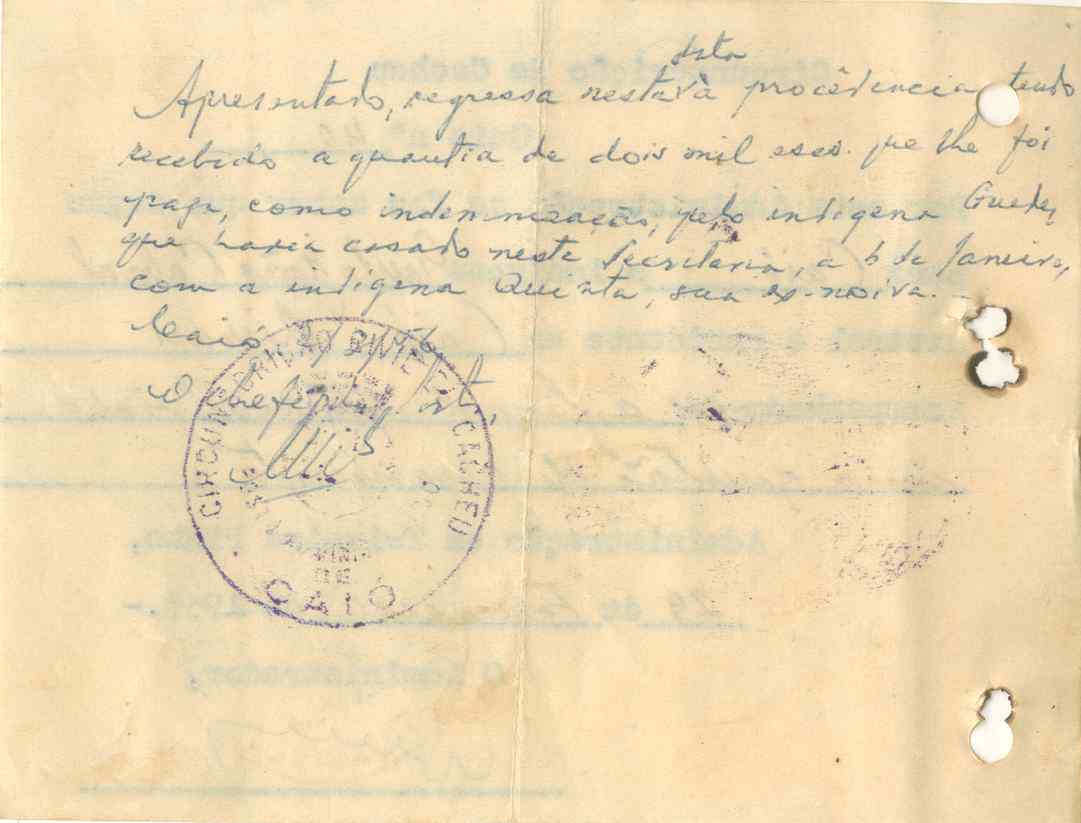 data
Apresentado, regressa nesta à procedencia, tendo
recebido a quantia de dois mil escs. que lhe foi
paga, como indemnização, pelo indígena Guedes,
que havia casado neste Secretaria, a 6 de Janeiro,
com a indigena Quinta, sua ex-noiva.
Caió,
O Chefe de Posto,
CIRCUNSCRIÇÃO CIVIL DE CACHEU
DE
CAIÓ